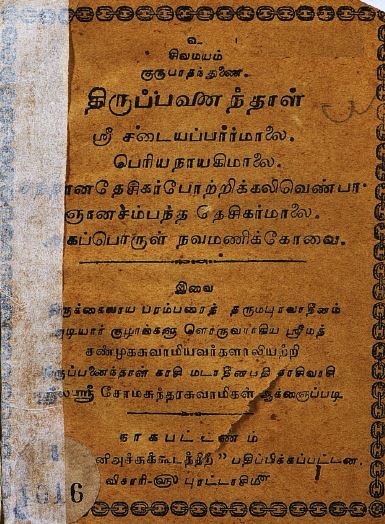 உ
சிவமயம்
குருபாதந்துணை.
திருப்பனைந்தாள்
ஸ்ரீ சடையப்பர்மாலை.
பெரியநாயகிமாலை.
தேசிகர்போற்றிக்கலிவெண்பா
ஞானசம்பந்த தேசிகர்மாலை.
கப்பொருள் நவமணிக்கோவை.
இவை
திருக்கைலாய பரம்பரைத் தருமபுரவாதீனம்
அடியார் குழாங்களு ளொருவராகிய ஸ்ரீமத்
சண்முகசுவாமியவர்களாலியற்றி
திருப்பனைந்தாள் காசி மடாதீனபதி காசிவாசி
ஸ்ரீலஸ்ரீ சோமசுந்தரசுவாமிகள் ஆக்ஞைப்படி
நாகபட்டணம்
பதிப்பிக்கப்பட்டன.
விசாரி-௵ புரட்டாசிமீ
6